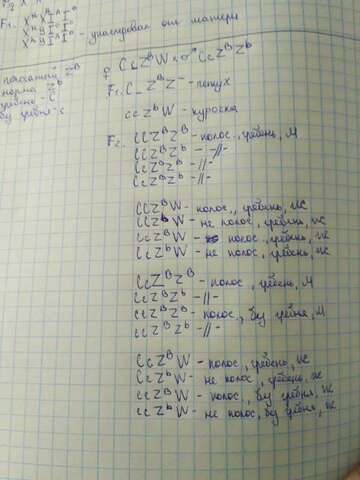 F₁. X X
унаследовал от матери
полосатый Zᴮ
норма Zᵇ
гребень - C
без гребня - c
♀ CcZᵇW × ♂ CcZᴮZᵇ
F₁. C_ZᴮZ⁻ - петух
ccZᵇW - курочка
F₂. CCZᴮZᴮ - полос., гребень, м
CCZᴮZᵇ - -//-
CcZᴮZᴮ - -//-
CcZᴮZᵇ - -//-
CCZᴮW - полос., гребень, ж
CCZᵇW - не полос., гребень, ж
CcZᴮW - полос., гребень, ж
CcZᵇW - не полос., гребень, ж
CcZᴮZᴮ - полос., гребень, м
CcZᴮZᵇ - -//-
ccZᴮZᴮ - полос., без гребня, м
ccZᴮZᵇ - -//-
CcZᴮW - полос., гребень, ж
CcZᵇW - не полос., гребень, ж
ccZᴮW - полос., без гребня, ж
ccZᵇW - не полос., без гребня, ж